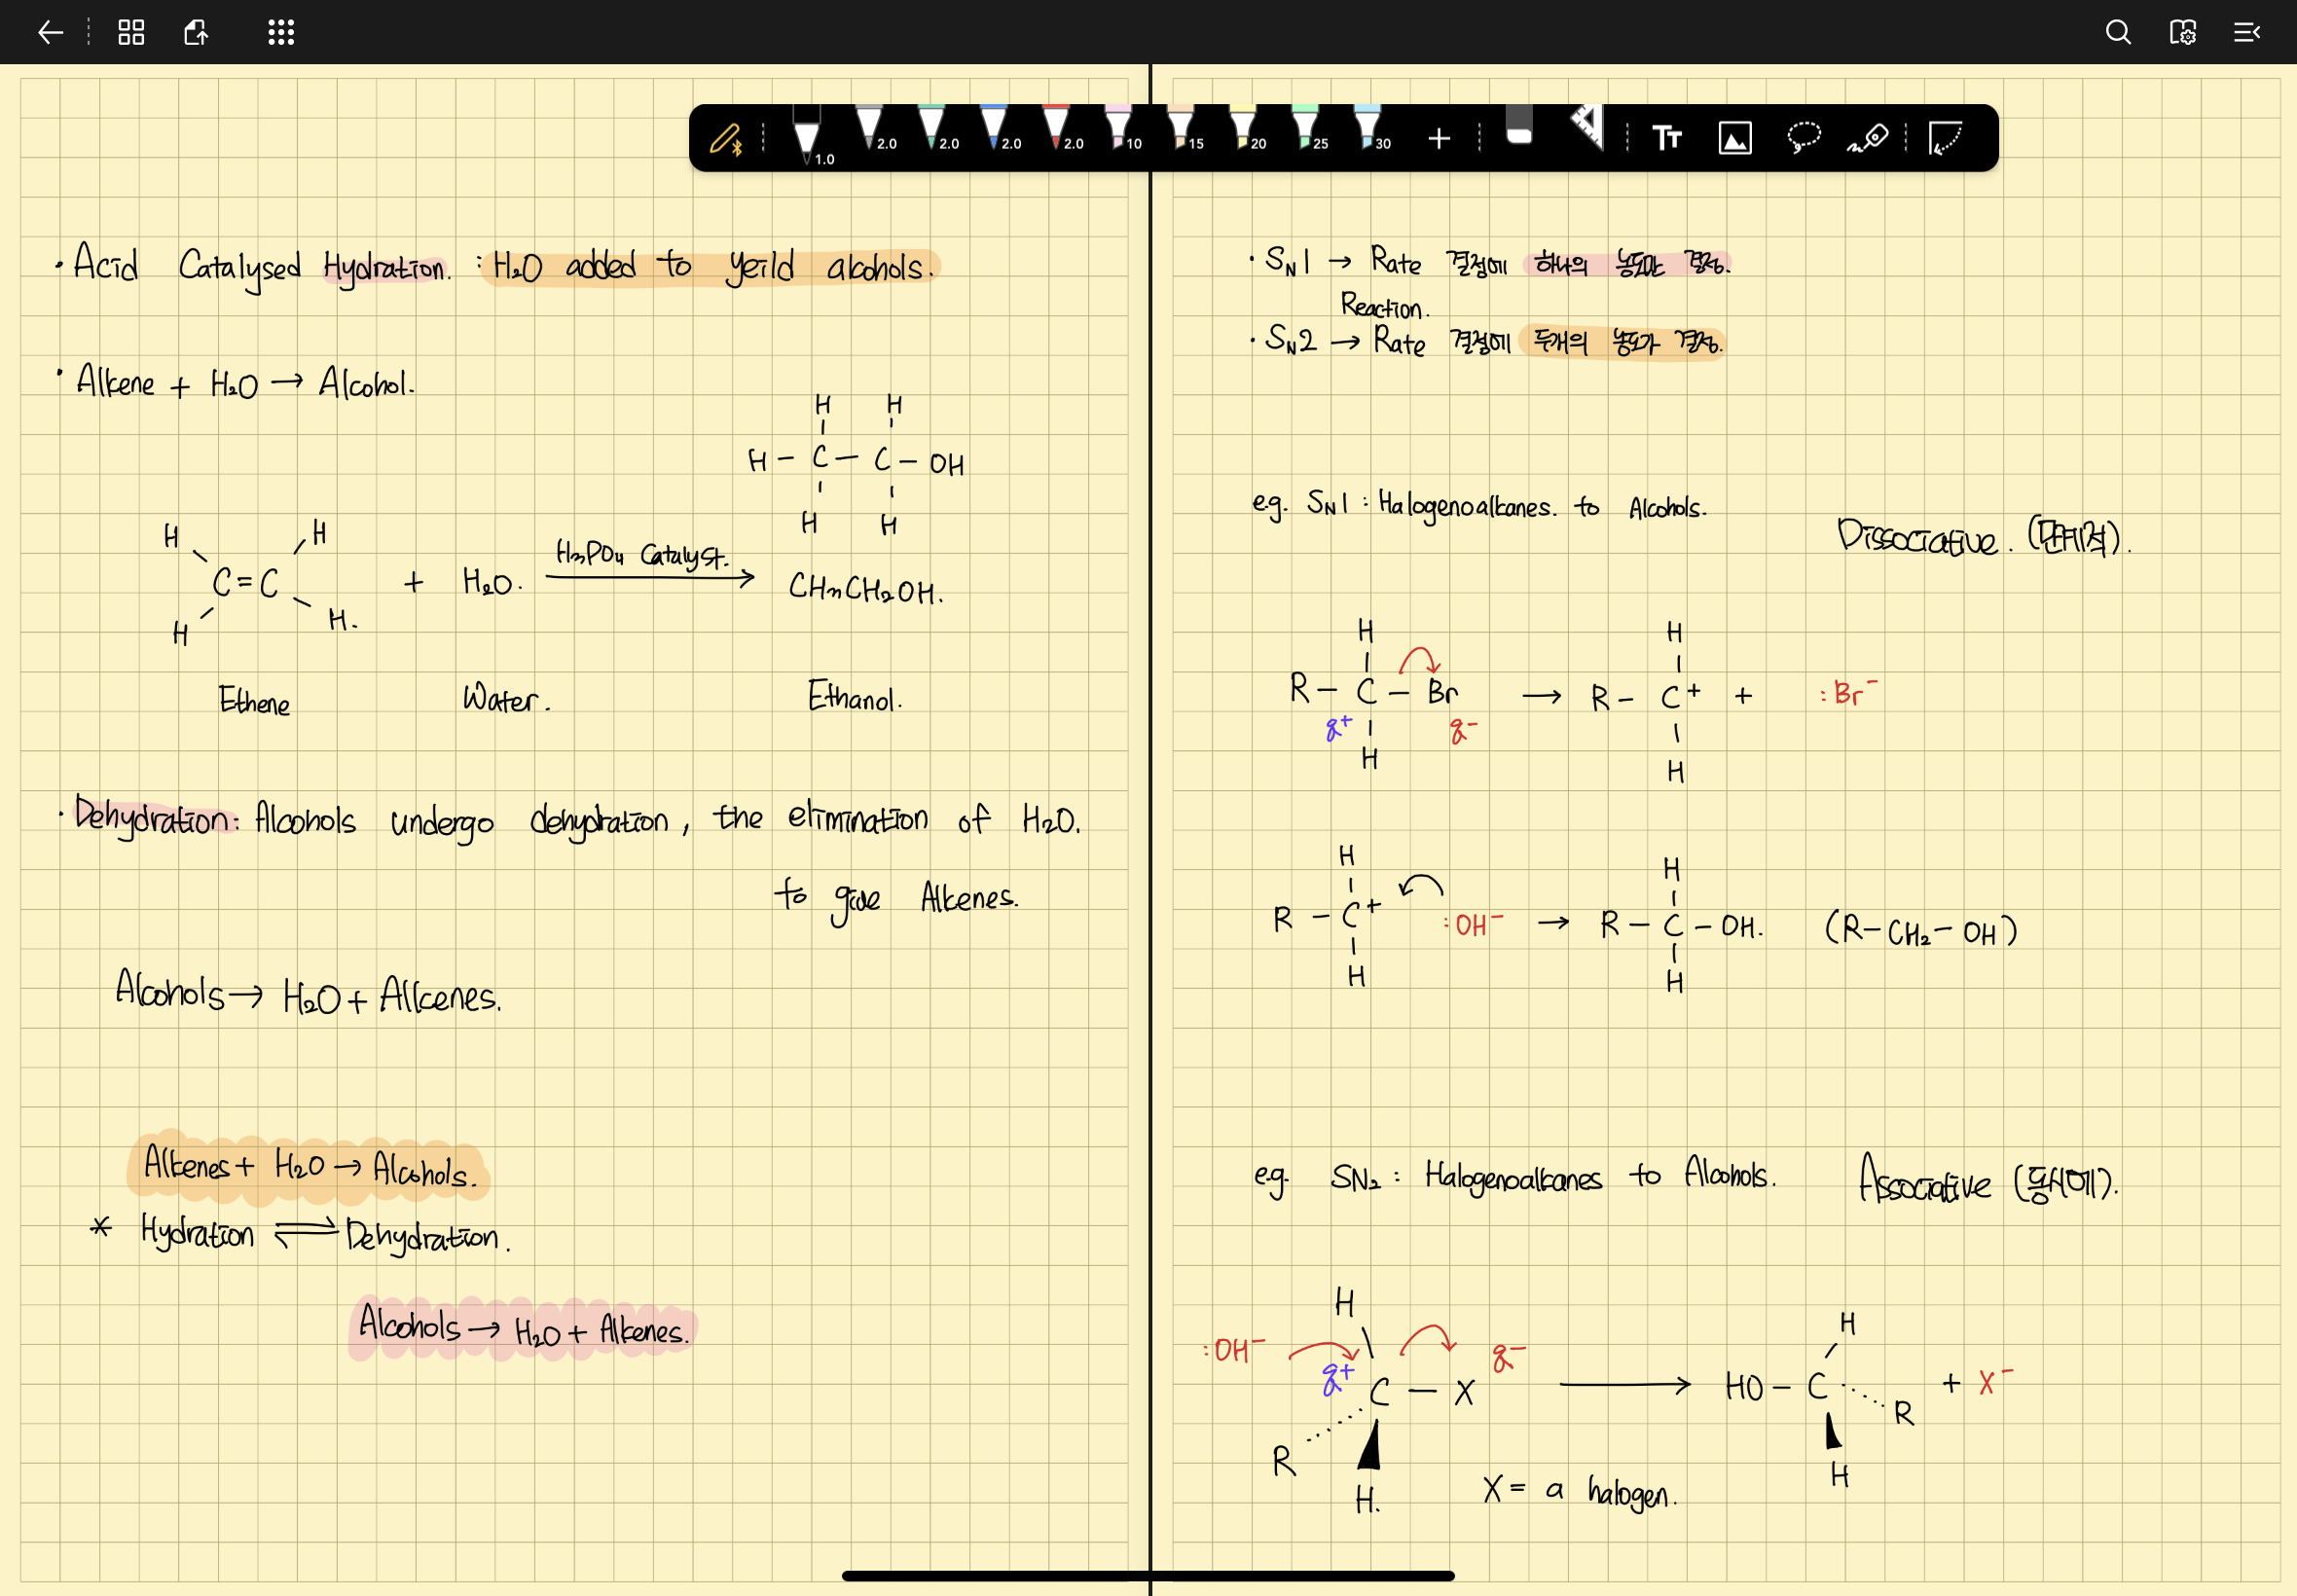 1.0 2.0 2.0 2.0 2.0 10 15 20 25 30 TT
· Acid Catalysed Hydration. : H₂O added to yeild alcohols.
· Alkene + H₂O → Alcohol.
H H
H – C – C – OH
H H
H H
C = C + H₂O. H₃PO₄ Catalyst. → CH₃CH₂OH.
H H.
Ethene Water. Ethanol.
· Dehydration: Alcohols undergo dehydration, the elimination of H₂O.
to give Alkenes.
Alcohols → H₂O + Alkenes.
Alkenes + H₂O → Alcohols.
* Hydration ⇌ Dehydration.
Alcohols → H₂O + Alkenes.
· SN1 → Rate 결정에 하나의 농도만 결정.
Reaction.
· SN2 → Rate 결정에 두개의 농도가 결정.
e.g. SN1 : Halogenoalkanes. to Alcohols.
Dissociative. (단계적).
H H
R – C – Br → R – C⁺ + :Br⁻
δ⁺ δ⁻
H H
H H
R – C⁺ :OH⁻ → R – C – OH. (R – CH₂ – OH)
H H
e.g. SN₂ : Halogenoalkanes to Alcohols. Associative (동시에).
H H
:OH⁻ δ⁺ δ⁻
C – X → HO – C + X⁻
R R
H. H
X = a halogen.